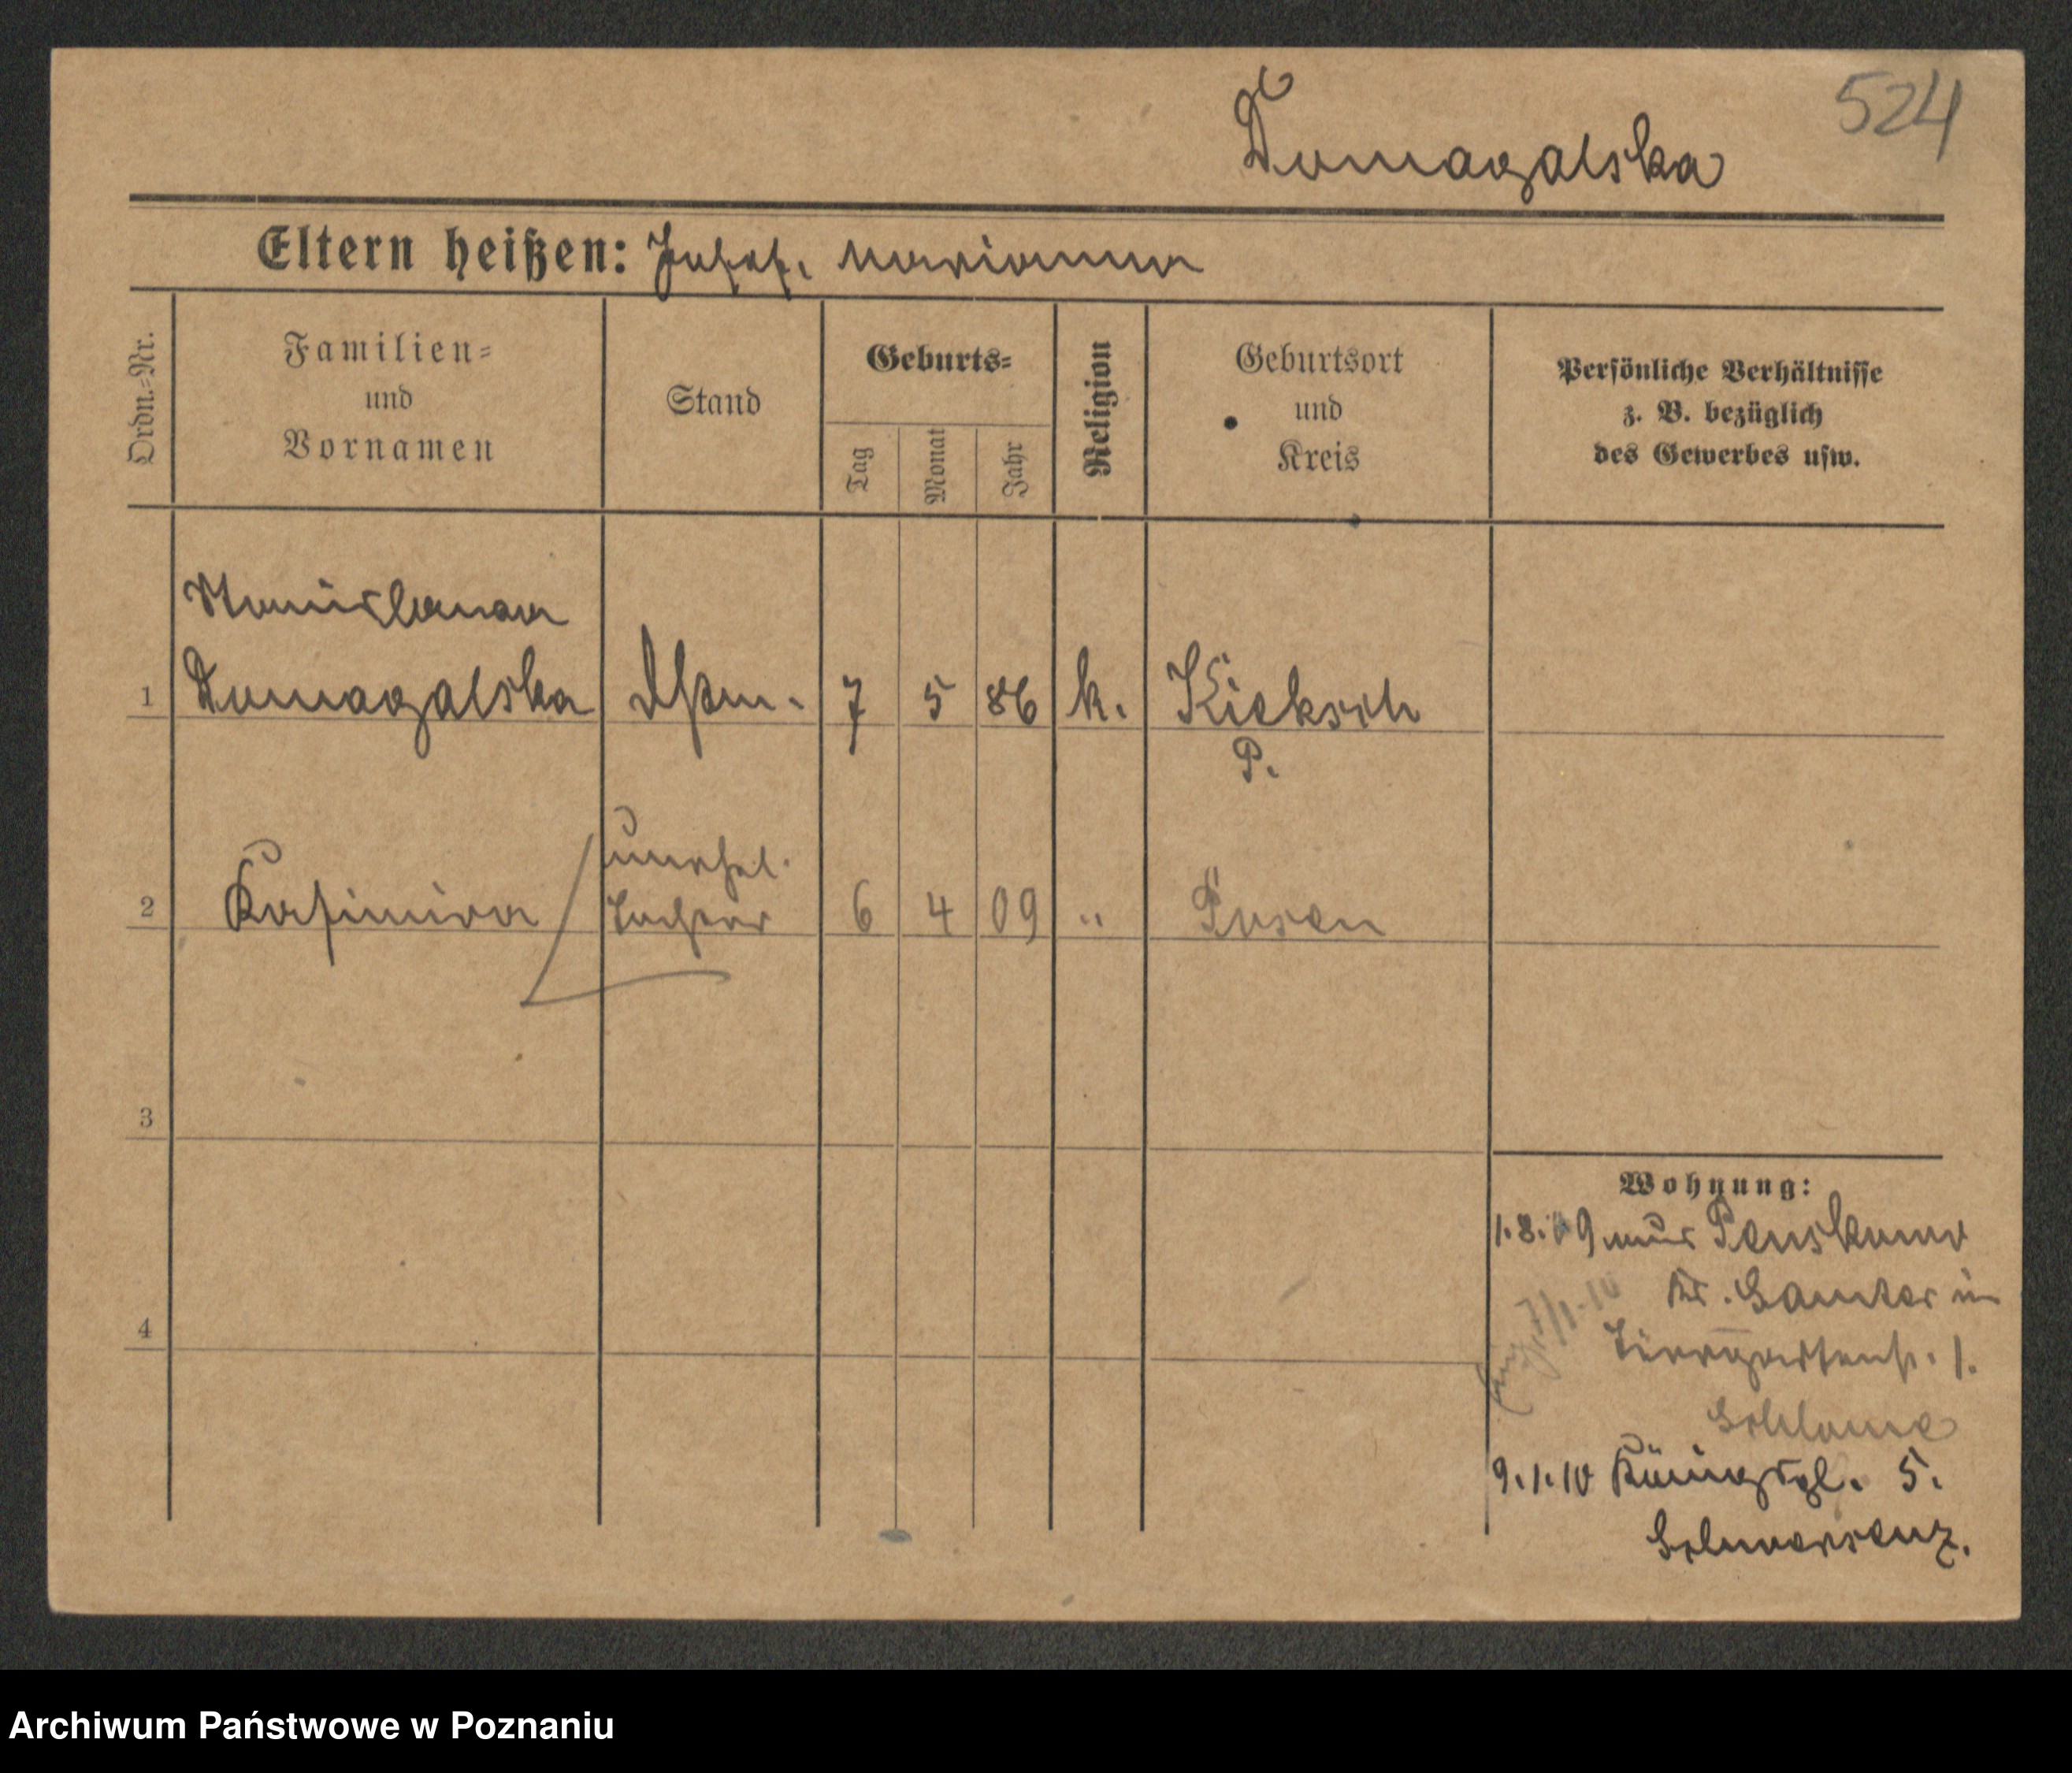 524
Domagalska
Eltern heißen: Josef, Marianna
Ordn.=Nr.
Familien=
und
Vornamen
Stand
Geburts=
Tag
Monat
Jahr
Religion
Geburtsort
und
Kreis
Persönliche Verhältnisse
z. B. bezüglich
des Gewerbes usw.
Stanislawa
1 Domagalska 7 5 86 k. Kieksch
P.
unehel.
2 Kasimira Tochter 6 4 09 " Posen
3
4
Wohnung:
1.8.09 aus Penskowo
Kr. Samter in
Tiergartenstr. 1.
7/1.10
9.1.10 Königspl. 5.
Schwarsenz.
Archiwum Państwowe w Poznaniu